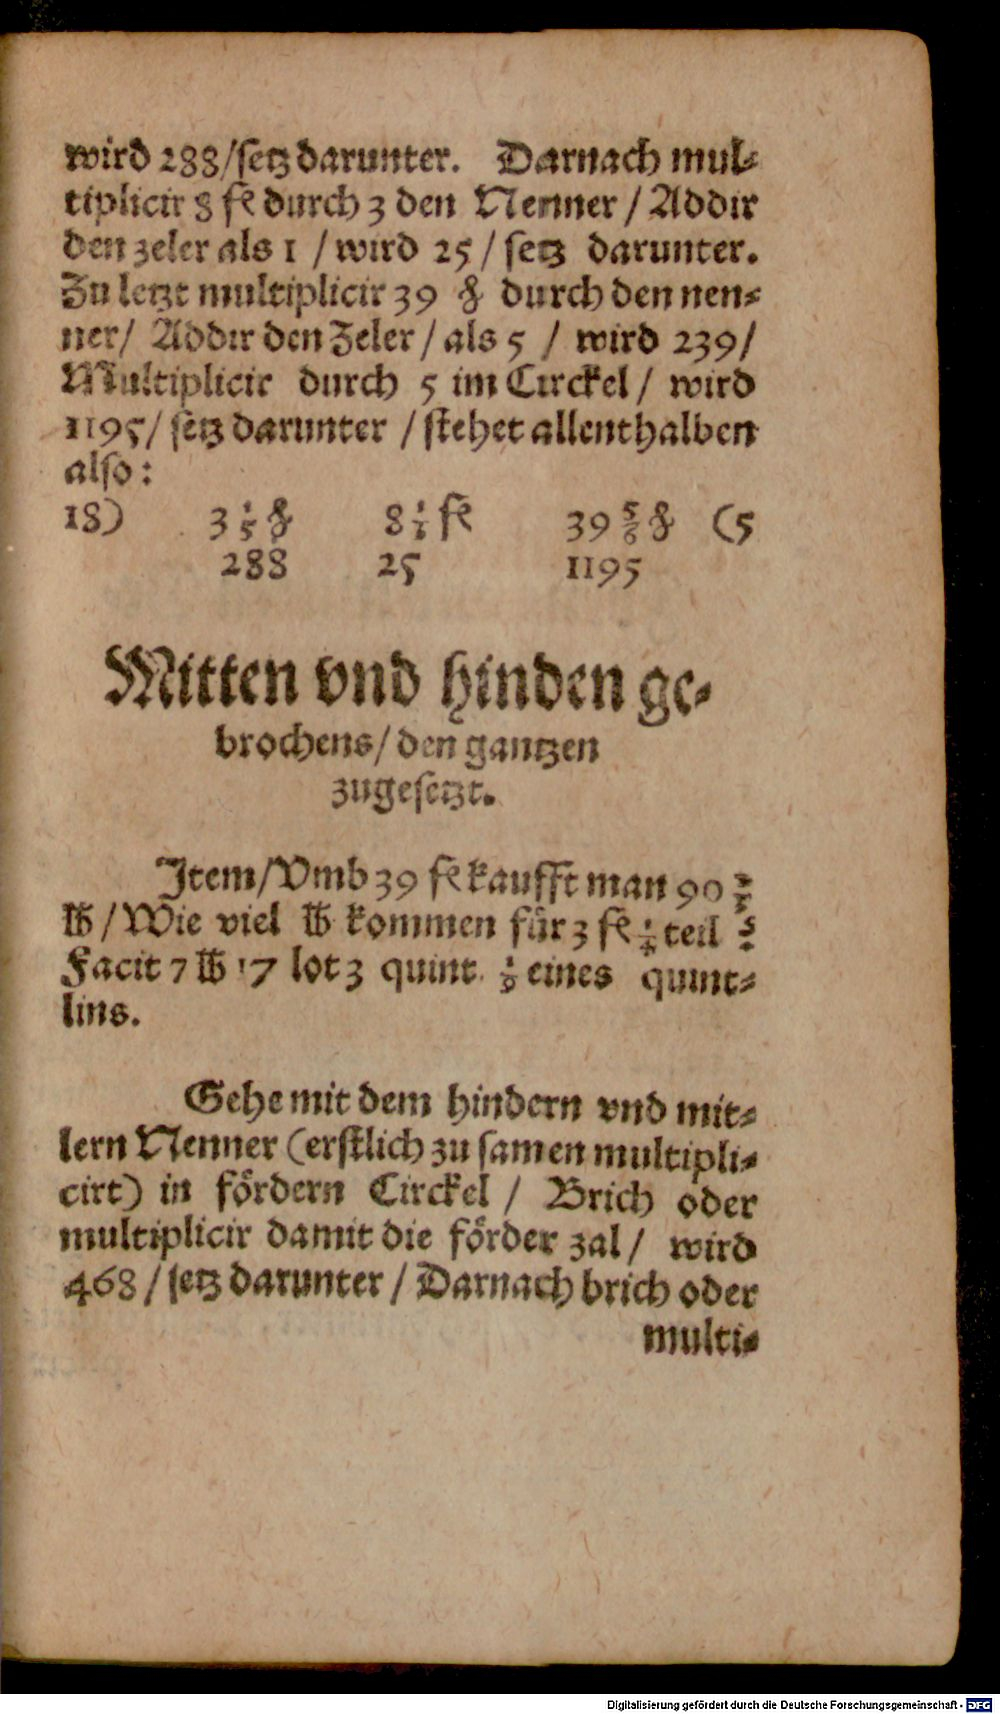 wird 288/setz darunter. Darnach mul⸗
tiplicir 8 fl durch 3 den Nenner / Addir
den zeler als 1 / wird 25 / setz darunter.
Zu letzt multiplicir 39 ₰ durch den nen⸗
ner/ Addir den Zeler / als 5 / wird 239/
Multiplicir durch 5 im Circkel / wird
1195/ setz darunter / stehet allenthalben
also:
18) 3 1/5 ₰ 8 1/3 fl 39 5/6 ₰ (5
288 25 1195
Mitten vnd hinden ge⸗
brochens/ den gantzen
zugesetzt.
Item/Vmb 39 fl kaufft man 90 2/3
℔ / Wie viel ℔ kommen für 3 fl 1/4 teil ?
Facit 7 ℔ 17 lot 3 quint 1/9 eines quint⸗
lins.
Gehe mit dem hindern vnd mit⸗
lern Nenner (erstlich zu samen multipli⸗
cirt) in fördern Circkel / Brich oder
multiplicir damit die förder zal / wird
468 / setz darunter / Darnach brich oder
multi⸗
Digitalisierung gefördert durch die Deutsche Forschungsgemeinschaft - DFG